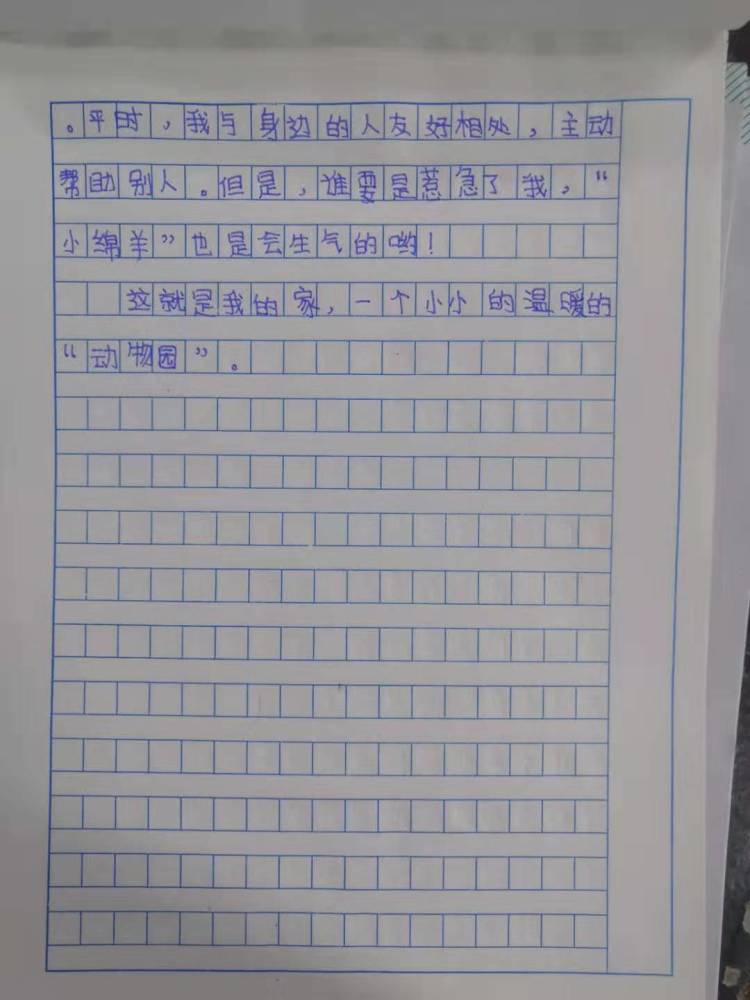 。平时，我与身边的人友好相处，主动
帮助别人。但是，谁要是惹急了我，“
小绵羊”也是会生气的哟！
这就是我的家，一个小小的温暖的
“动物园”。